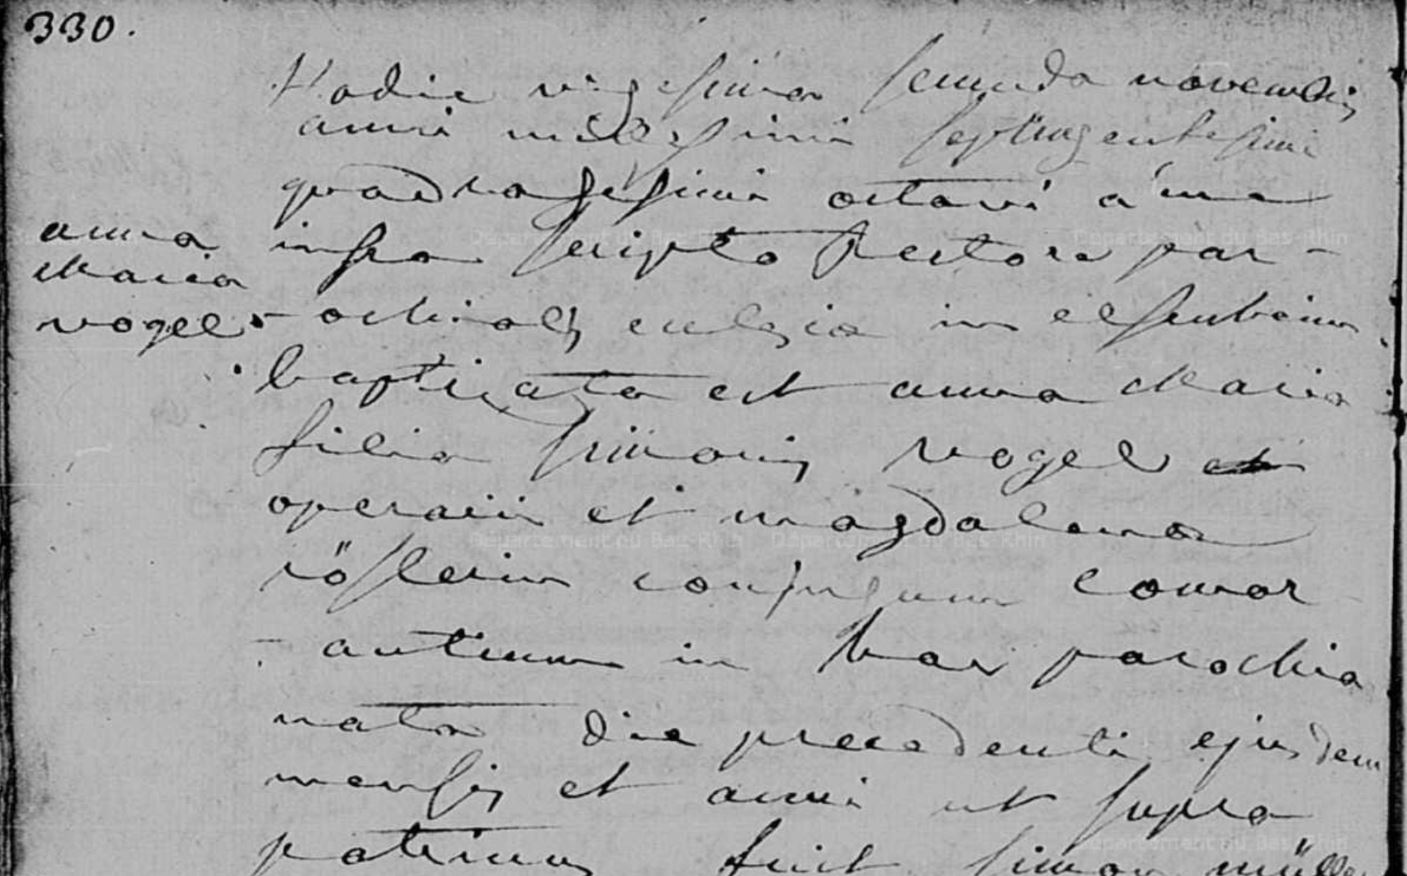 330.
Hodie vigesima secunda novembris
anni millesimi septingentesimi
quadragesimi octavi a me
infra scripto Rectore par-
ochialis eclesia in elsenheim
baptizata est anna Maria
filia simonis vogel et
operarii et magdalena
röslerin conjugum comor
-antium in hac parochia
nata die precedenti ejusdem
mensis et anni ut supra
patrinus fuit simon müller
anna
Maria
vogel